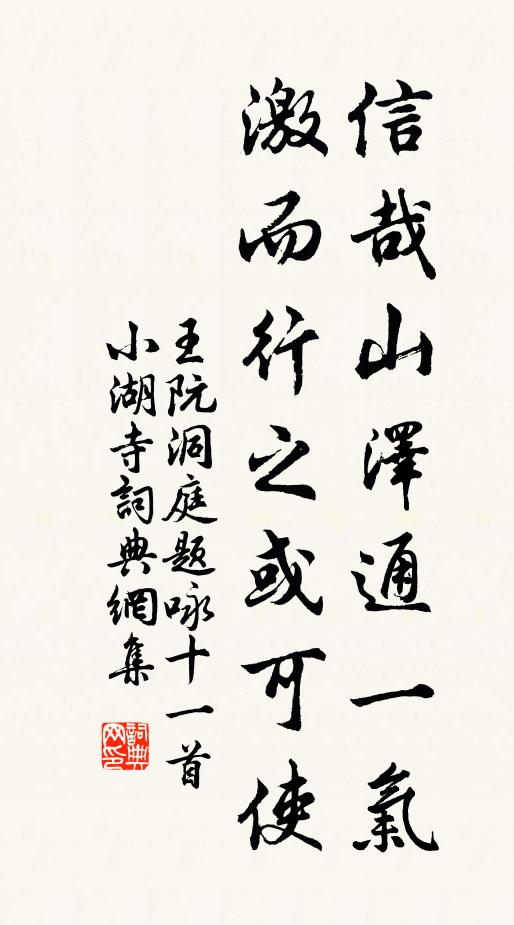 信哉山澤通一氣
激而行之或可使
王阮洞庭题咏十一首
小湖寺詞典網集
詞典网印